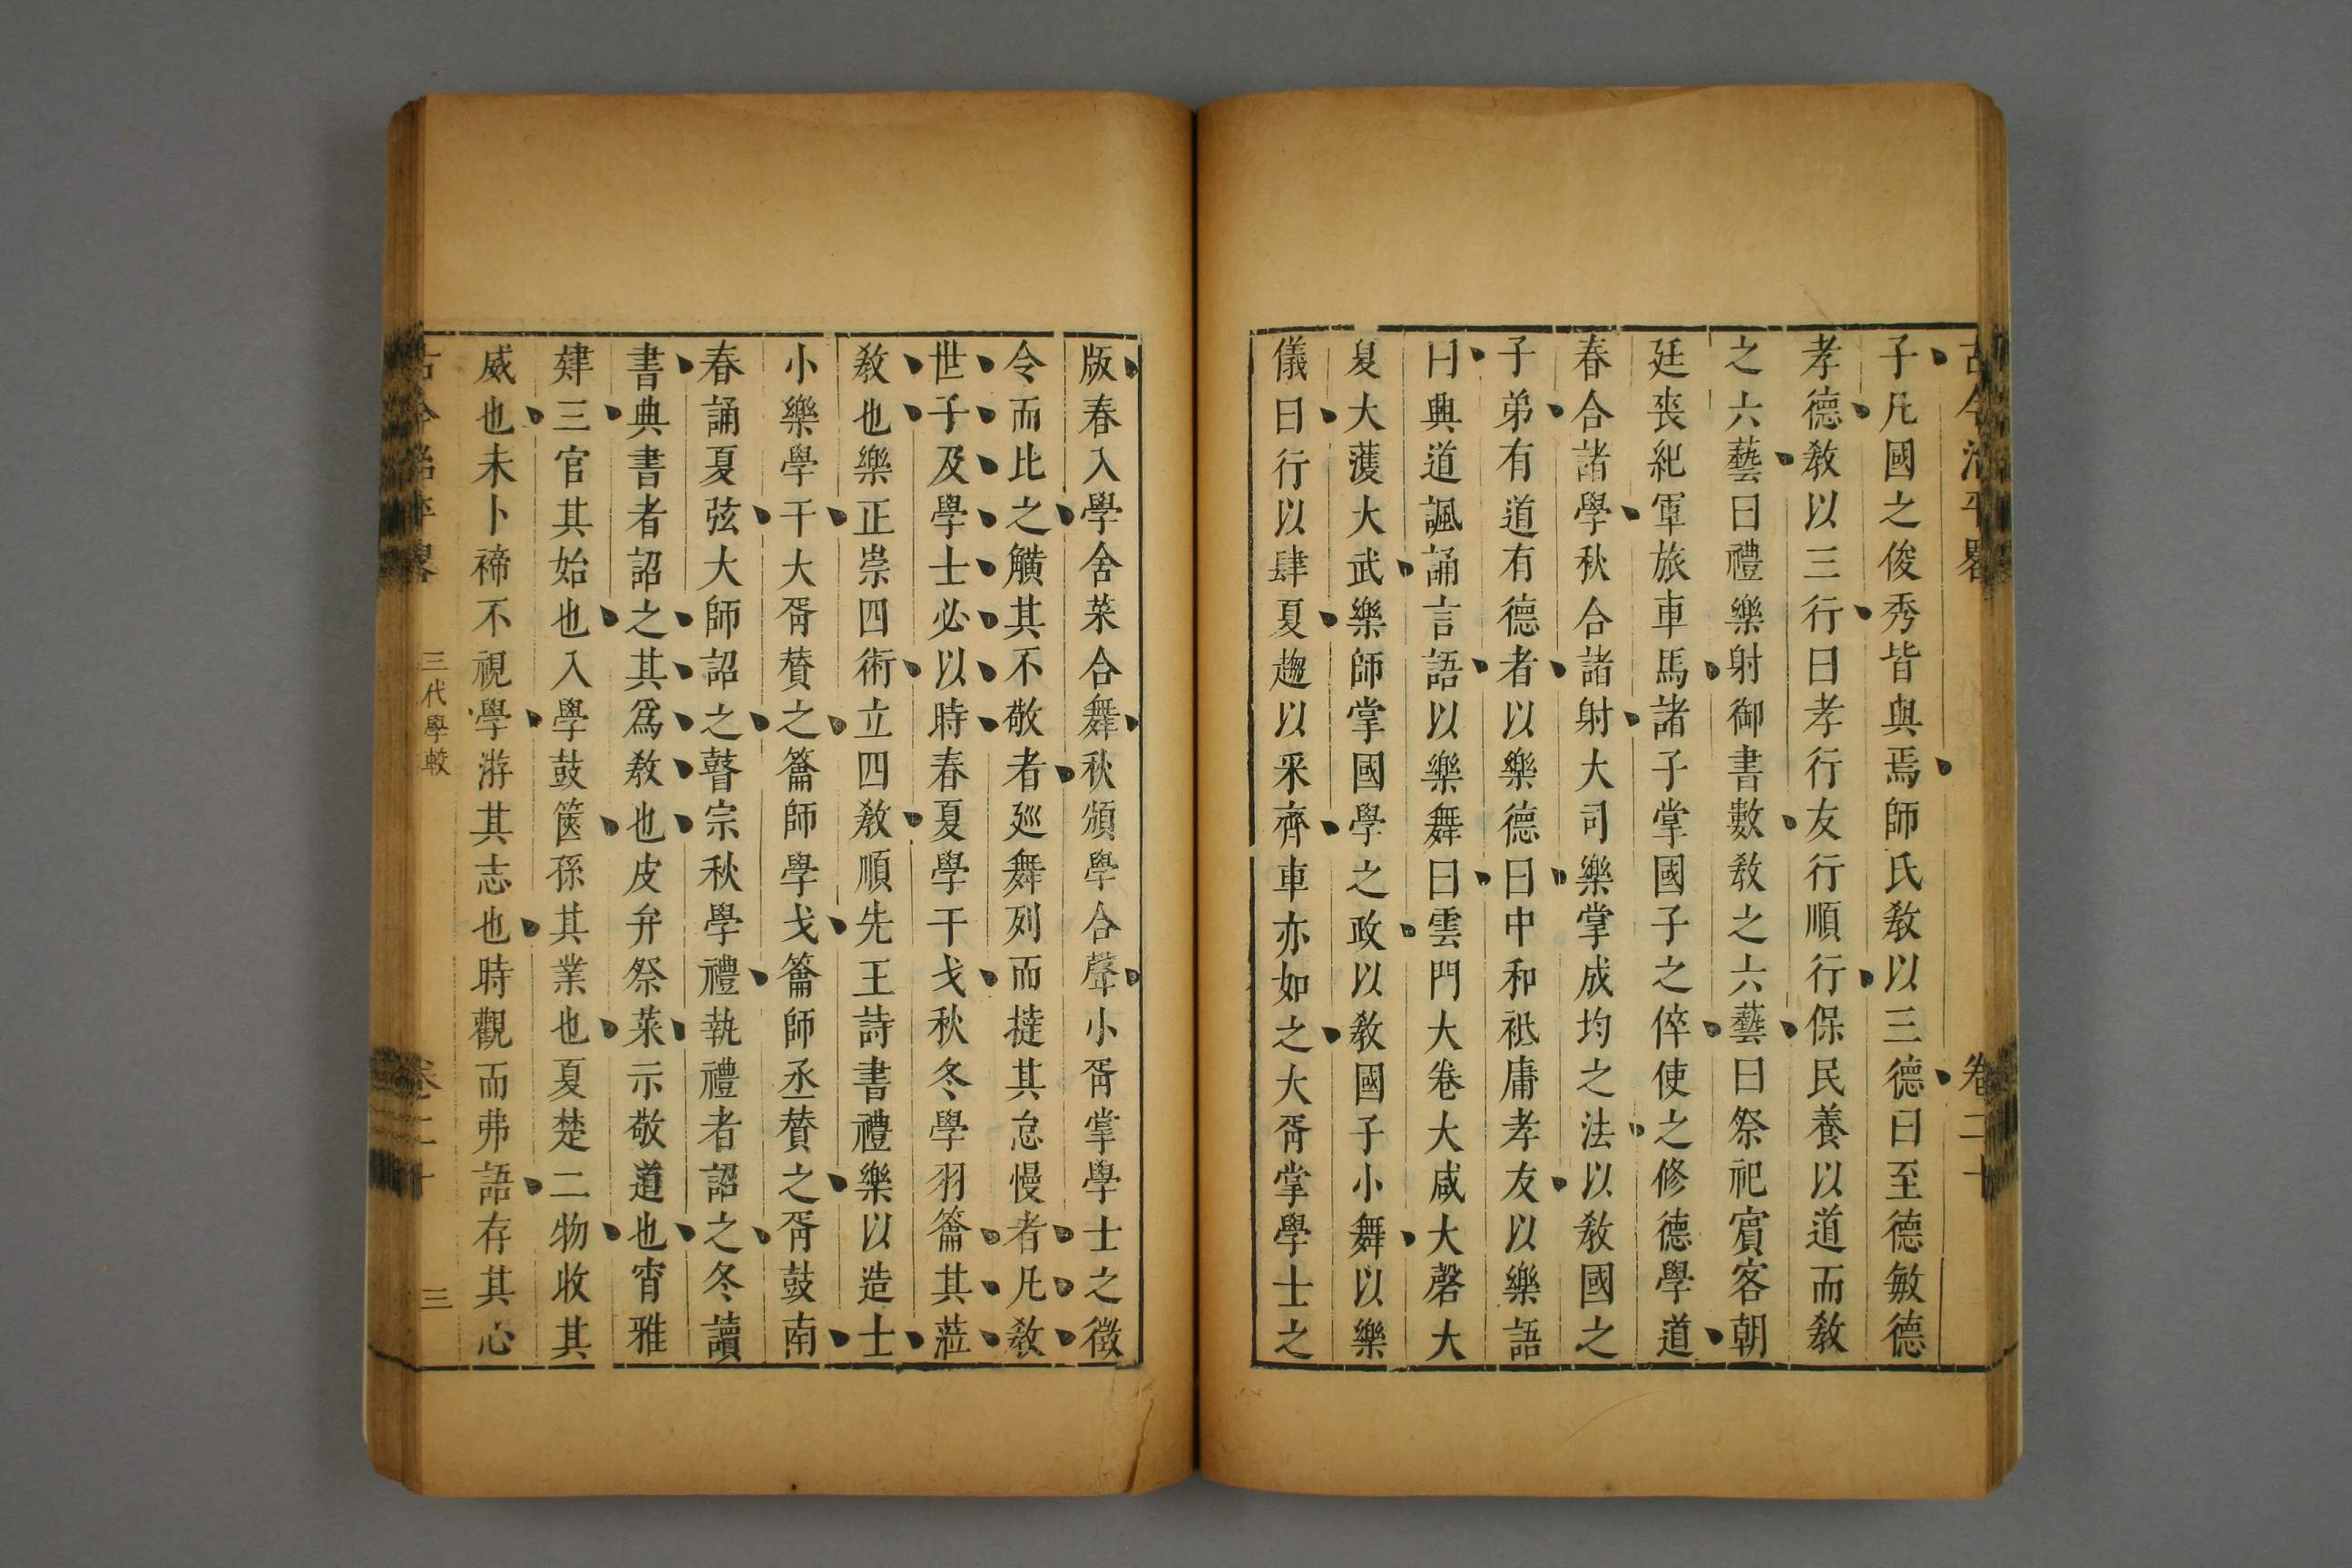 古今治平畧 卷二十
子凡國之俊秀皆與焉師氏教以三德曰至德敏德
孝德教以三行曰孝行友行順行保民養以道而教
之六藝曰禮樂射御書數教之六藝曰祭祀賓客朝
廷喪紀軍旅車馬諸子掌國子之倅使之修德學道
春合諸學秋合諸射大司樂掌成均之法以教國之
子弟有道有德者以樂德曰中和祗庸孝友以樂語
曰興道諷誦言語以樂舞曰雲門大卷大咸大磬大
夏大濩大武樂師掌國學之政以教國子小舞以樂
儀曰行以肆夏趨以采齊車亦如之大胥掌學士之
版春入學舍菜合舞秋頒學合聲小胥掌學士之徵
令而比之觵其不敬者廵舞列而撻其怠慢者凡教
世子及學士必以時春夏學干戈秋冬學羽籥其蒞
教也樂正崇四術立四教順先王詩書禮樂以造士
小樂學干大胥賛之籥師學戈籥師丞賛之胥鼓南
春誦夏弦大師詔之瞽宗秋學禮執禮者詔之冬讀
書典書者詔之其爲教也皮弁祭菜示敬道也宵雅
肄三官其始也入學鼓篋孫其業也夏楚二物收其
威也未卜禘不視學游其志也時觀而弗語存其心
古今治平畧 三代學較 卷二十 三